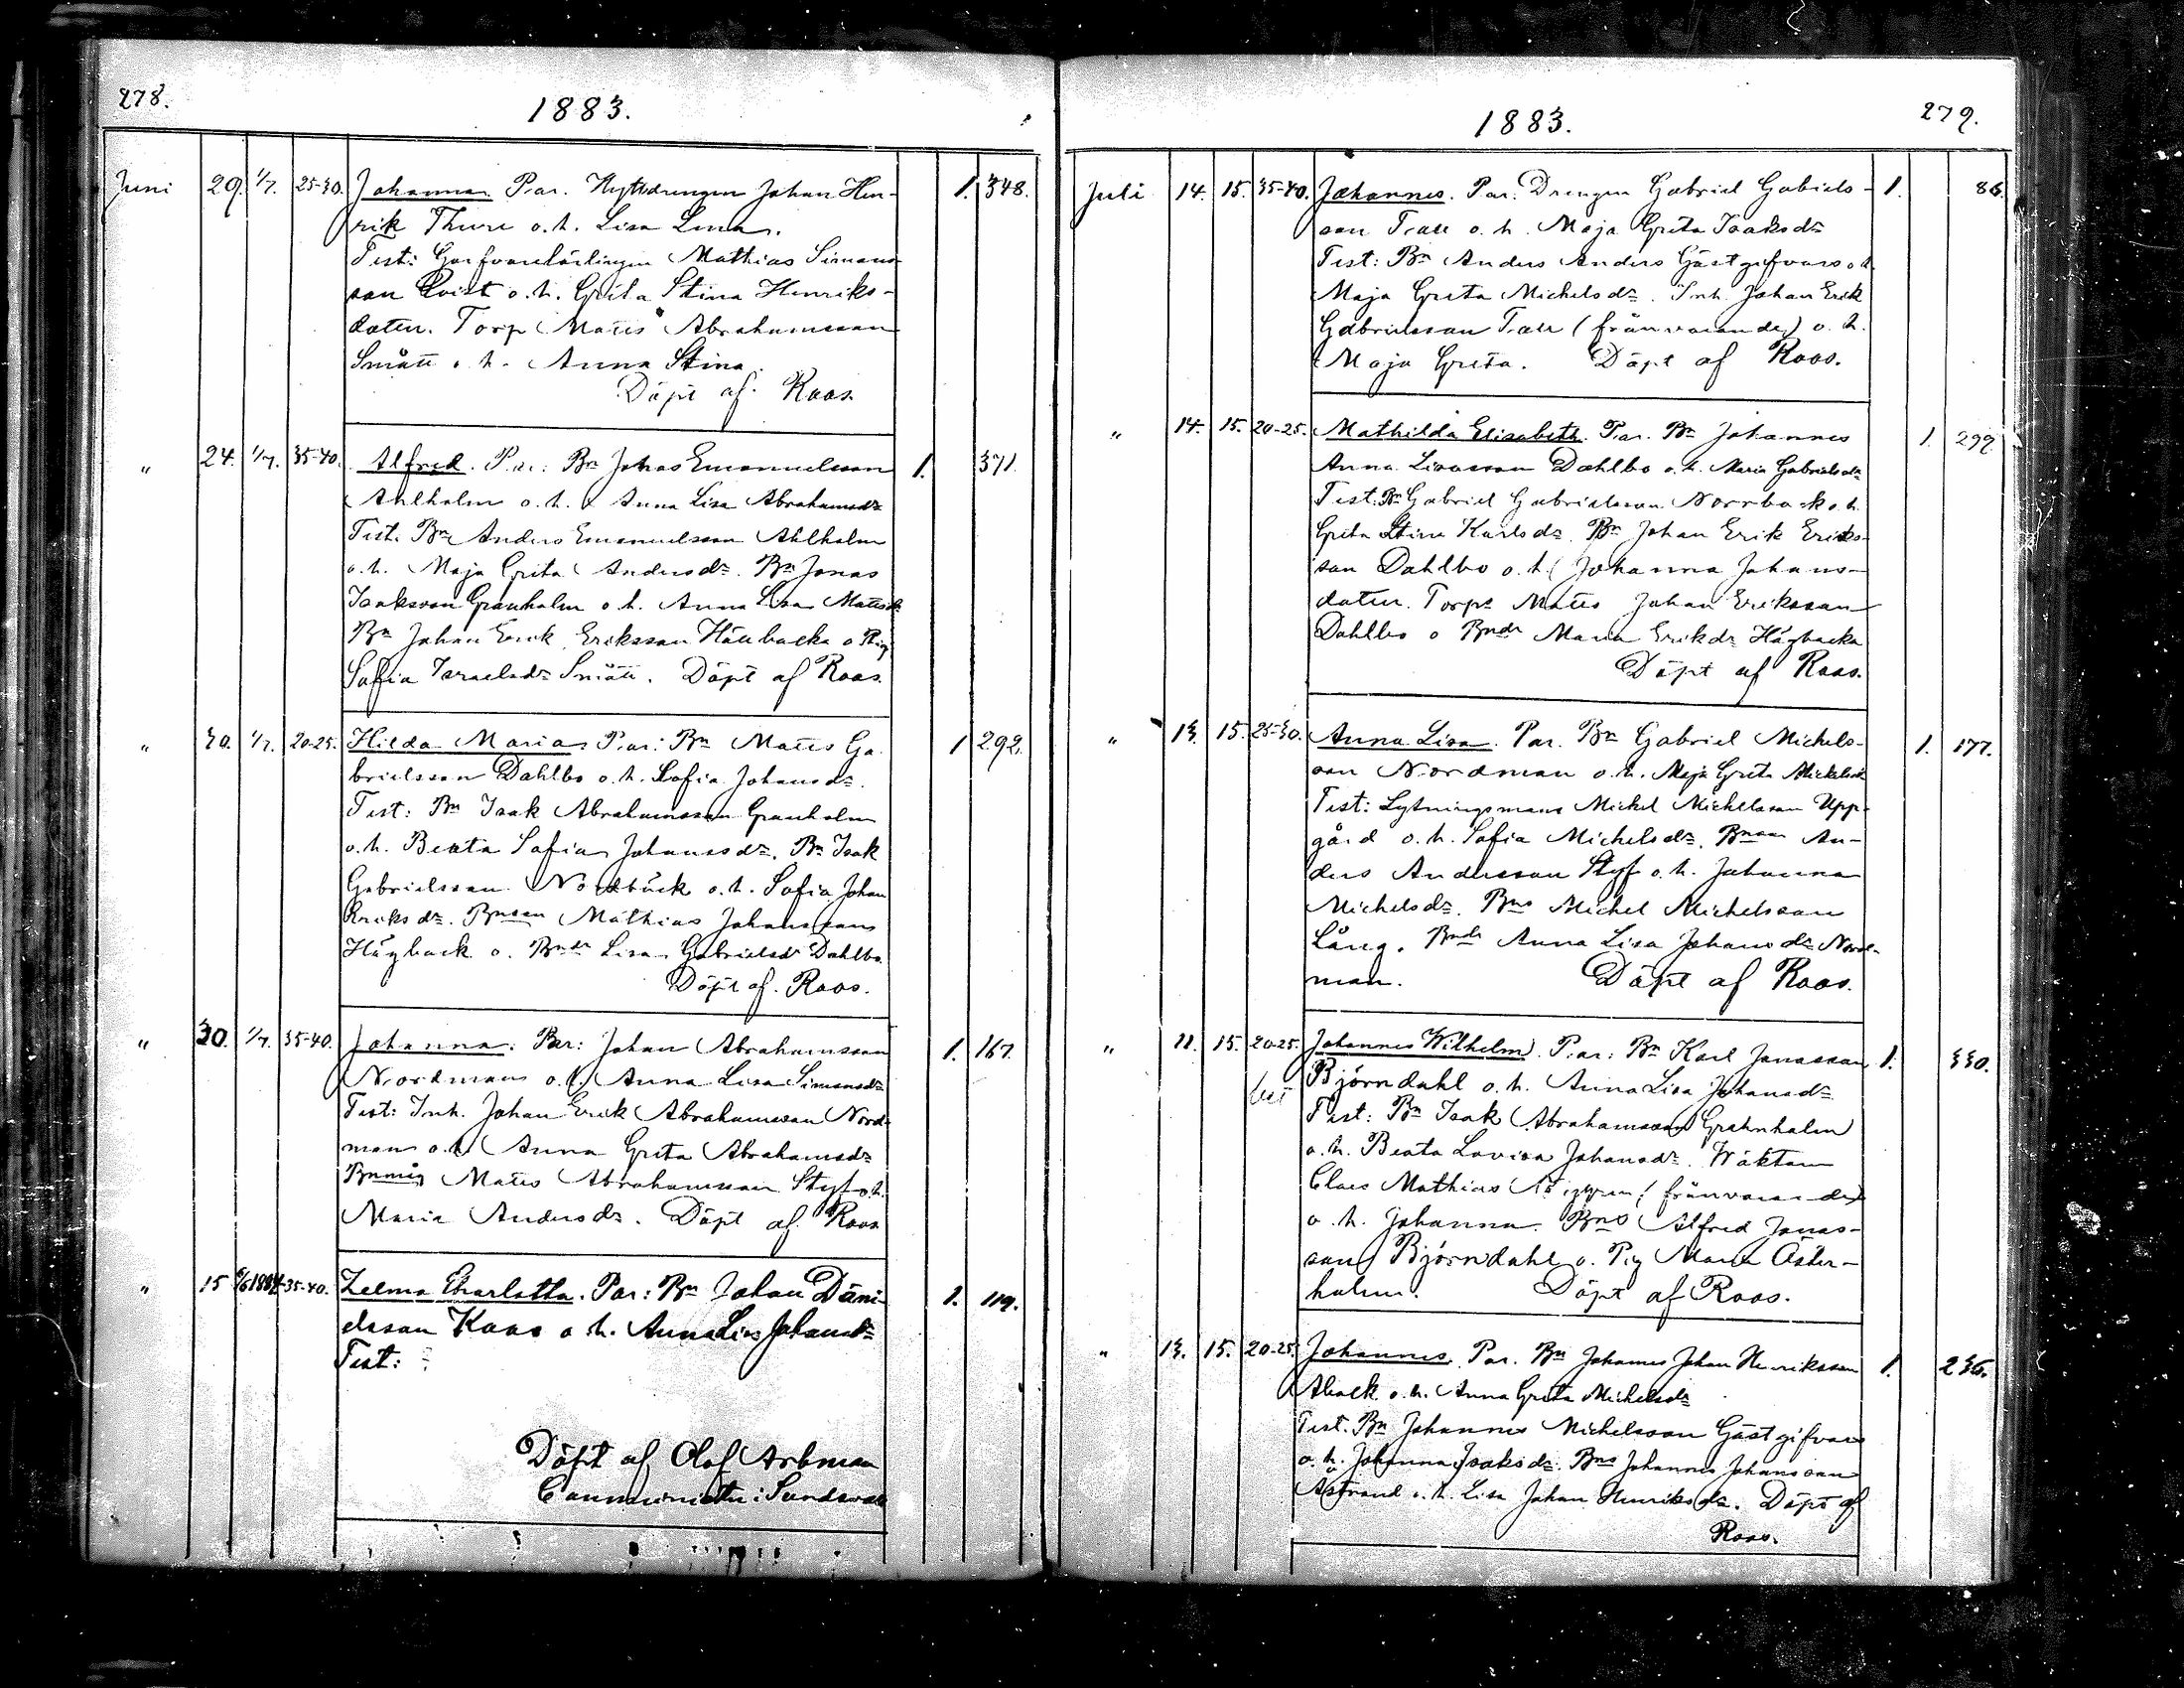 278.
1883.
Juni 29. 1/7. 25-30. Johanna. Par. Hyttdrengen Johan Hen- 1. 348.
rik Thure o. h. Lisa Lena.
Test: Garfvarelärlingen Mathias Simons-
son Qvist o. h. Greta Stina Henriks-
dotter. Torp Matts Abrahamsson
Smått o. h. Anna Stina.
Döpt af Roos.
" 24. 1/7. 35-40. Alfred. Par: Bn Johas Emanuelsson 1. 371.
Ahlholm o. h. Anna Lisa Abrahamsdr
Test. Bn Anders Emanuelsson Ahlholm
o. h. Maja Greta Andersdr. Bn Jonas
Isaksson Granholm o. h. Anna Lisa Mattsdr
Bn Johan Erik Eriksson Hällbacka o Pig
Sofia Israelsdr Smått. Döpt af Roos.
" 30. 1/7. 20-25. Hilda Maria. Par: Bn Matts Ga- 1 292.
brielsson Dahlbo o. h. Sofia Johansdr.
Test: Bn Isak Abrahamsson Granholm
o. h. Beata Sofia Johansdr. Bn Isak
Gabrielsson Nordbäck o. h. Sofia Johan
Eriksdr. Bnson Mathias Johansson
Högback o. Bndr Lisa Gabrielsdr Dahlbo.
Döpt af. Roos.
" 30. 1/7. 35-40. Johanna. Par: Johan Abrahamsson 1. 167.
Nordman o. h. Anna Lisa Simonsdr
Test: Inh. Johan Erik Abrahamsson Nord-
man o. h. Anna Greta Abrahamsdr
Bnmåg Matts Abrahamsson Styf o. h.
Maria Andersdr. Döpt af Roos
" 15 6/6 1884 35-40. Zelma Charlotta. Par: Bn Johan Dani- 1. 119.
elsson Kaas o. h. Anna Lisa Johansdr
Test: ?
Döpt af Olof Arbman
Communister i Sundsvall
279.
1883.
Juli 14. 15. 35-40. Johannes. Par. Drengen Gabriel Gabriels- 1. 86.
son Trall o. h. Maja Greta Isaksdr
Test: Bn Anders Anders Gästgifvars o. h.
Maja Greta Michelsdr. Inh. Johan Erik
Gabrielsson Trall (frånvarande) o. h.
Maja Greta. Döpt af Roos.
" 14. 15. 20-25. Mathilda Elisabeth. Par. Bn Johannes 1. 299.
Anna Lisasson Dahlbo o. h. Maria Gabrielsdr
Test: Bn Gabriel Gabrielsson Norrback o. h.
Greta Stina Karlsdr. Bn Johan Erik Eriks-
son Dahlbo o. h. Johanna Johans-
dotter. Torps Matts Johan Eriksson
Dahlbo o Bndr Maria Eriksdr Högbacka
Döpt af Roos.
" 13. 15. 25-30. Anna Lisa. Par. Bn Gabriel Michels- 1. 177.
son Nordman o. h. Maja Greta Mickelsdr
Test: Lytningsmans Mickel Michelsson Upp-
gård o. h. Sofia Michelsdr. Bnson An-
ders Andersson Styf o. h. Johanna
Michelsdr. Bns Michel Michelsson
Lång. Bndr Anna Lisa Johansdr Nord-
man. Döpt af Roos.
" 11. 15. 20-25. Johannes Wilhelm. Par: Bn Karl Jonasson 1. 330.
Björndahl o. h. Anna Lisa Johansdr
Test: Bn Isak Abrahamsson Grahnholm
o. h. Beata Lovisa Johansdr. Wäktaren
Claes Mathias (frånvarande)
o. h. Johanna. Bns Alfred Jonas-
son Björndahl o. Pig Maria Öster-
holm. Döpt af Roos.
" 13. 15. 20-25. Johannes. Par. Bn Johannes Johan Henriksson 1. 236.
Aback o. h. Anna Greta Michelsdr
Test. Bn Johannes Michelsson Gästgifvars
o. h. Johanna Isaksdr. Bns Johannes Johansson
Åstrand o. h. Lisa Johan Henriksdr. Döpt af
Roos.